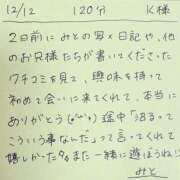 12/12 120分 K様
2日前にみとの写メ日記や、他
のお兄様たちが書いてくださった
クチコミを見て、興味を持って
初めて会いに来てくれて、本当に
ありがとう 途中「沼るって
こういう事なんだ」って言ってくれて
嬉しかった また一緒に遊ぼうね!!
みと